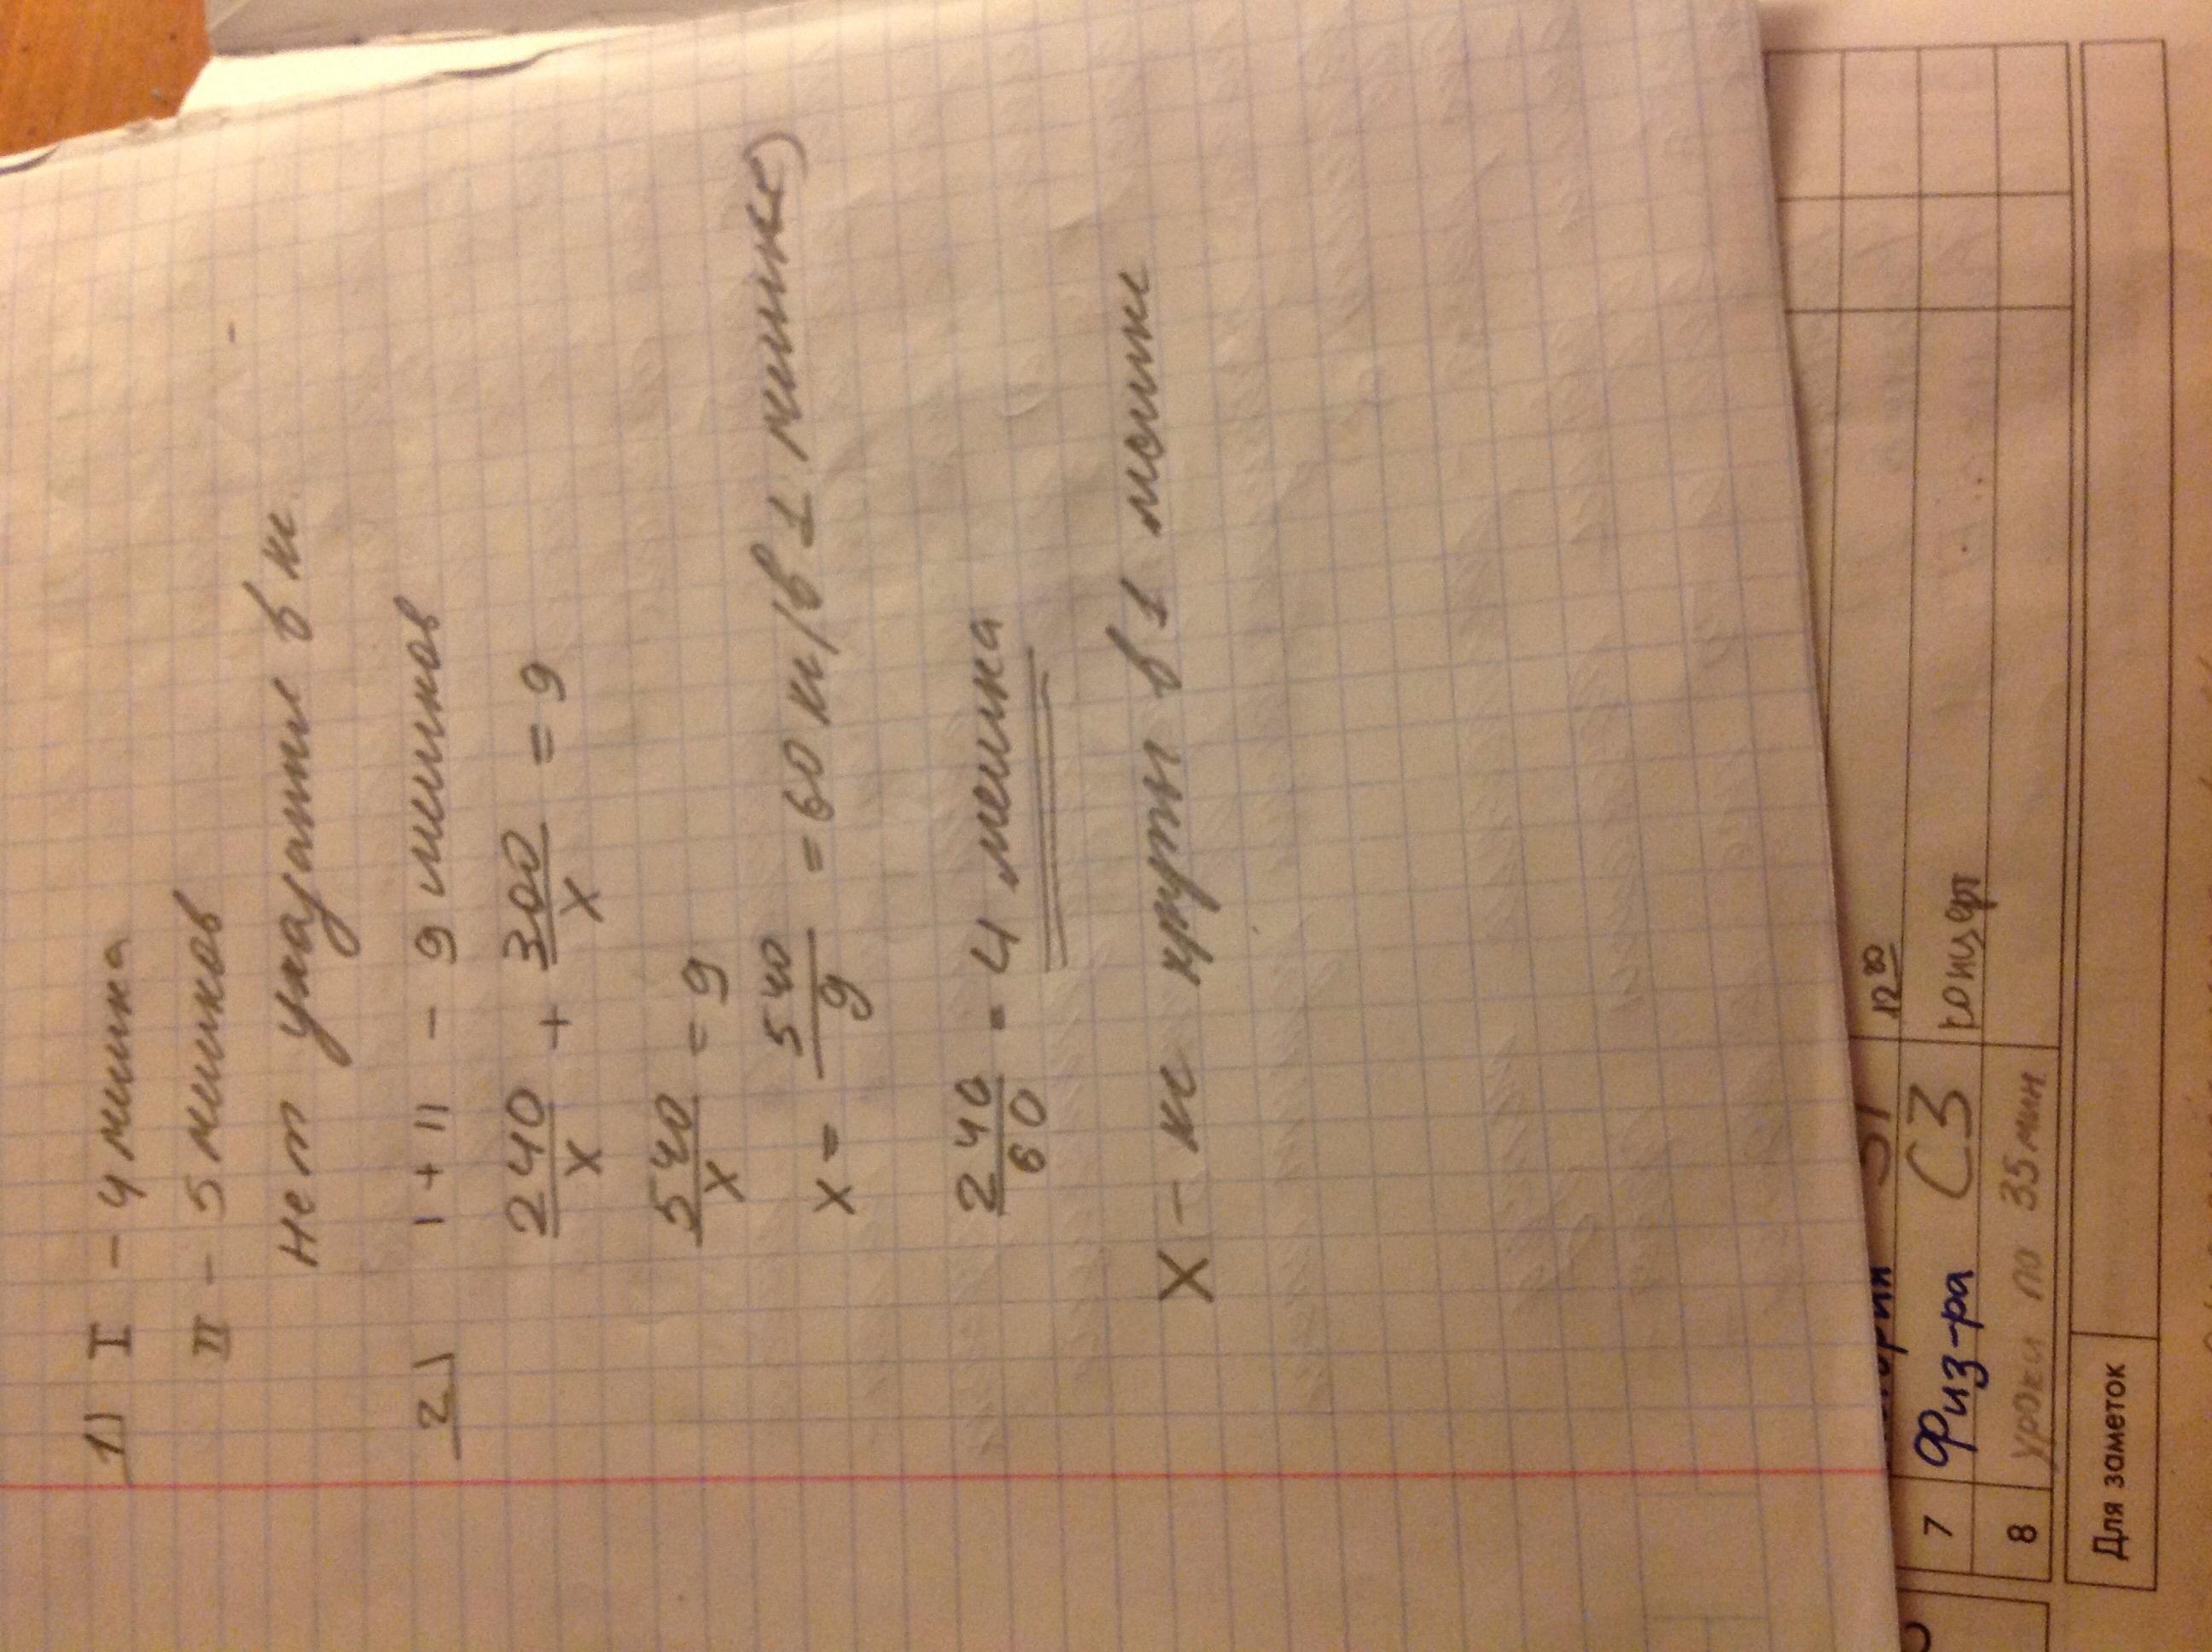 1) I - 4 мешка
II - 5 мешков
нет указания в кг.
2) I + II - 9 мешков
240/x + 300/x = 9
540/x = 9
x = 540/9 = 60 кг (в 1 мешке)
240/60 = 4 мешка
X - кг крупы в 1 мешке
12 30
7 Физ-ра С3 концерт
8 уроки по 35 мин
Для заметок